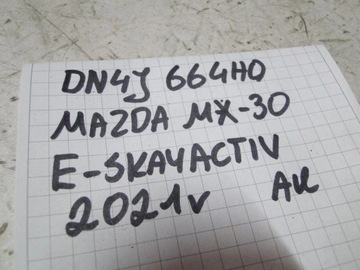 DN4J 664H0
MAZDA MX-30
E-SKAYACTIV
2021r AK